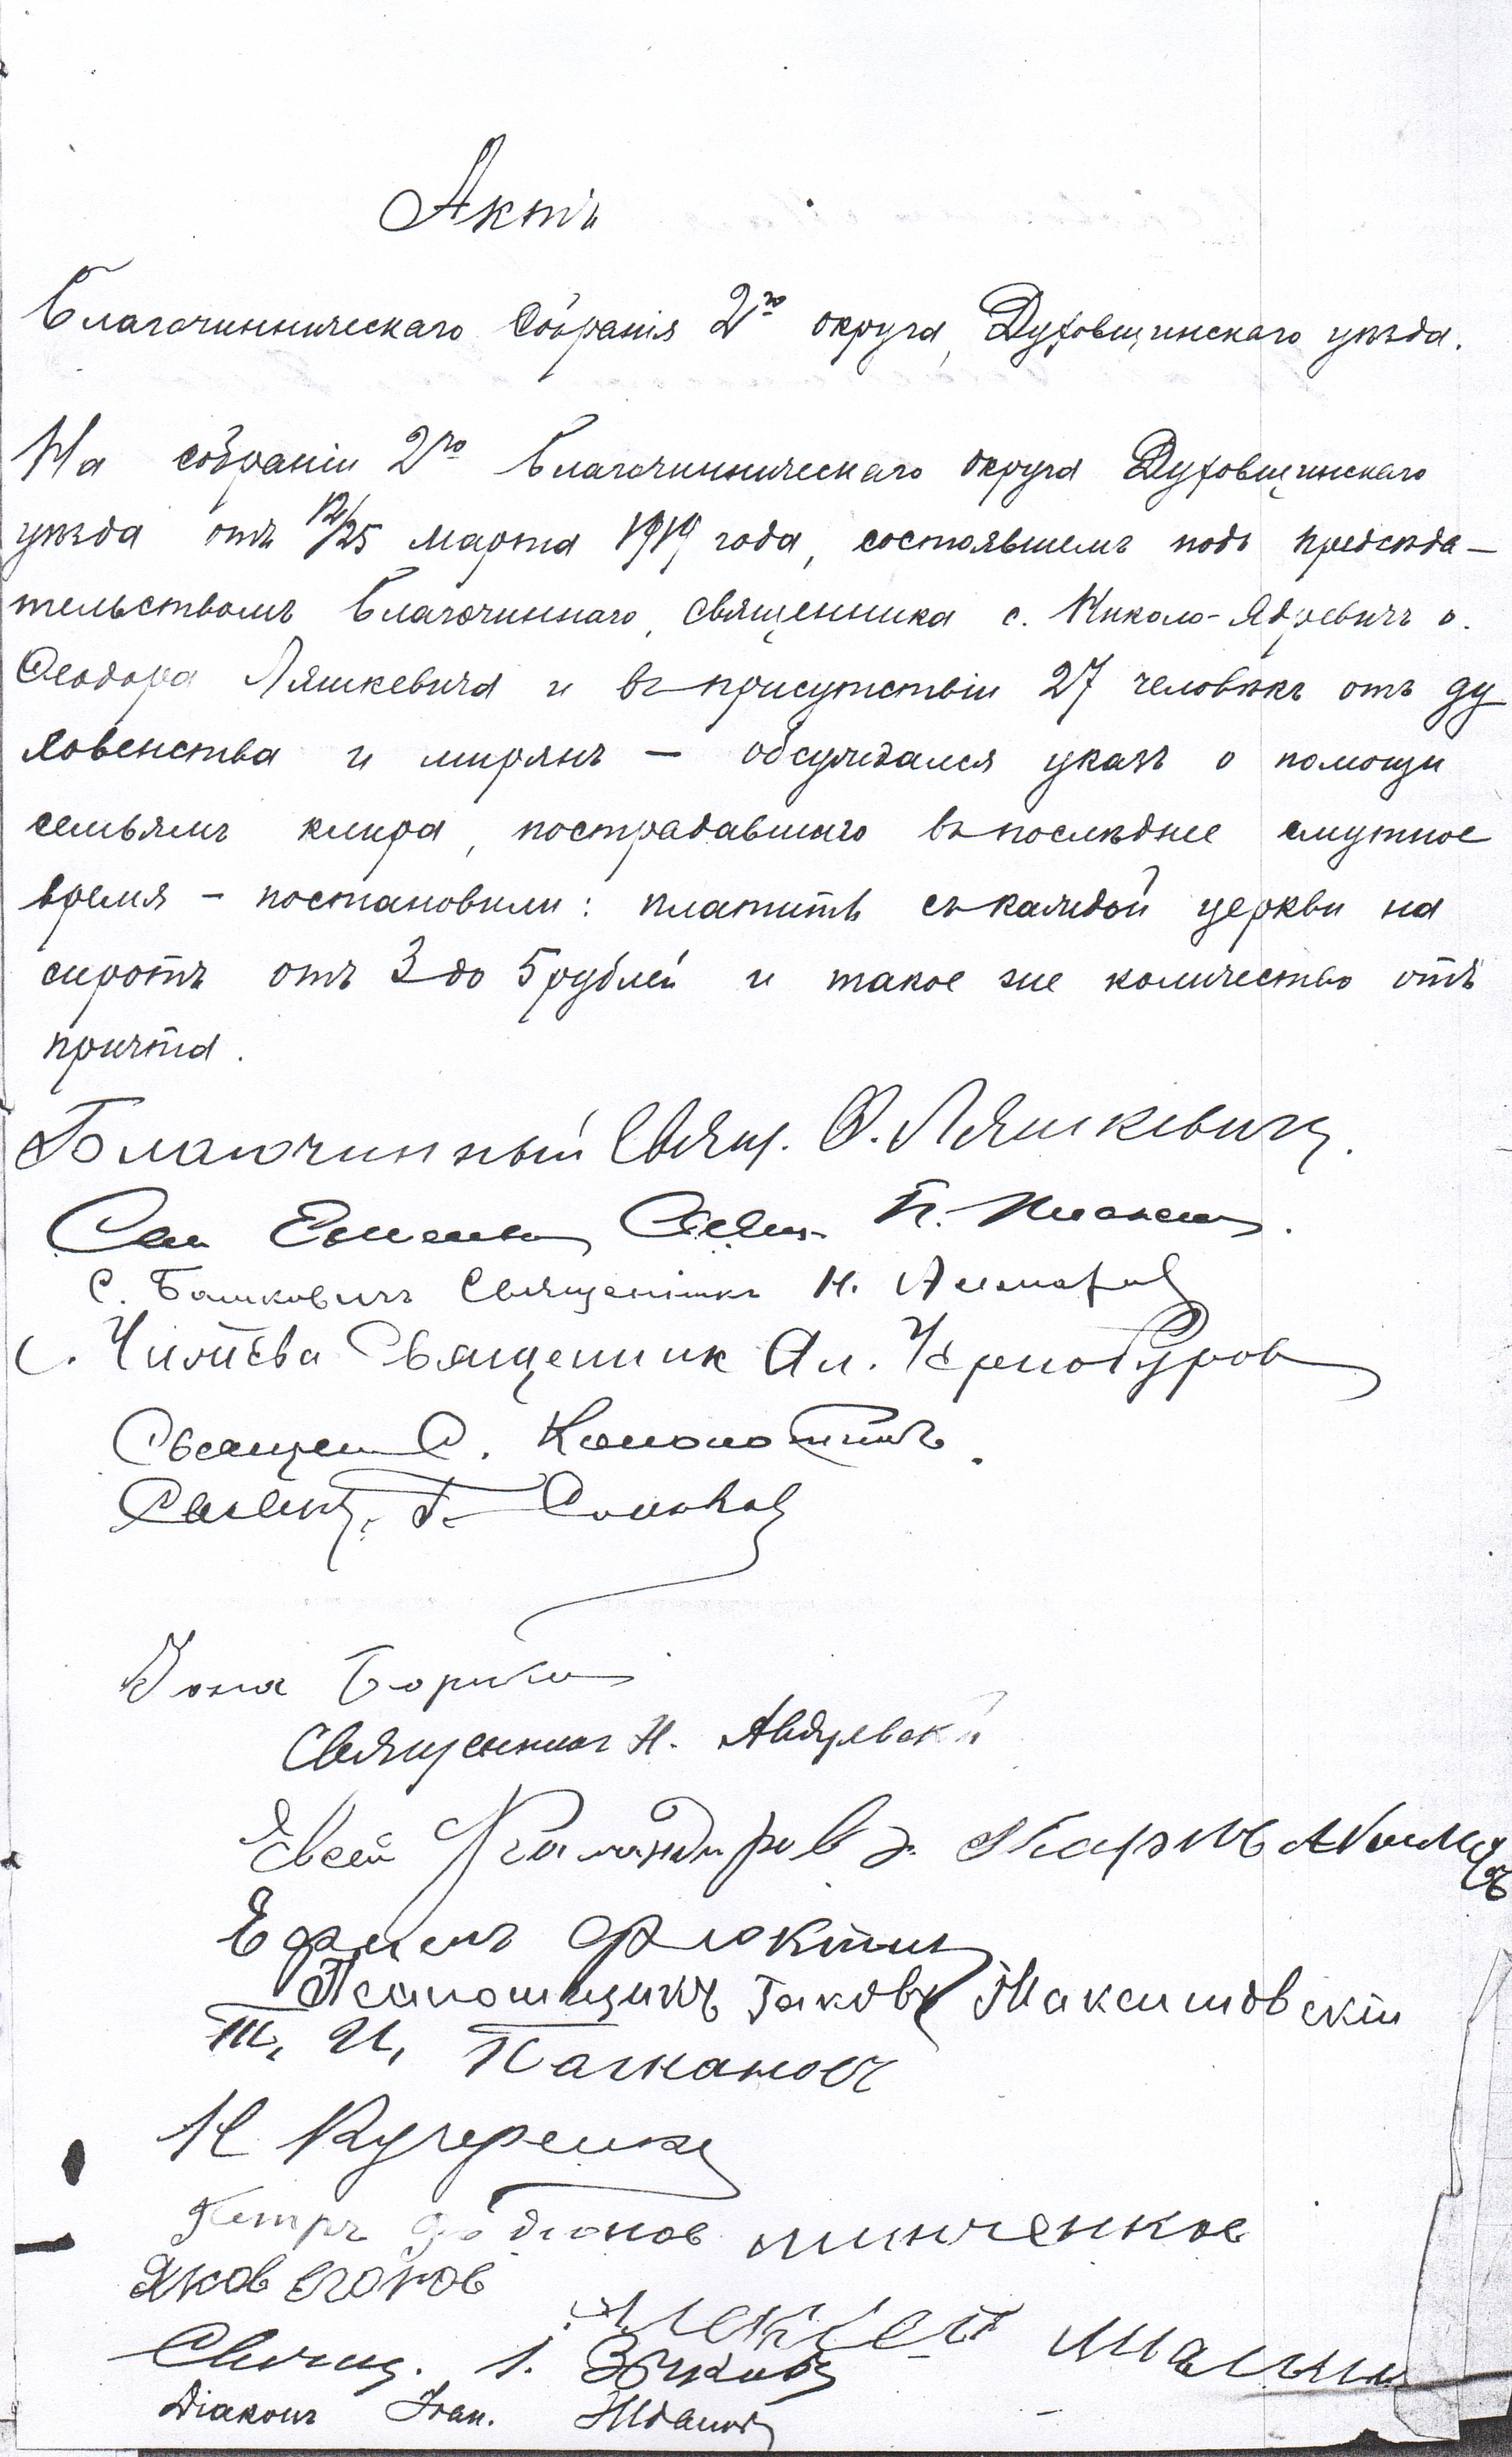 Актъ
Благочинническаго Собранія 2го округа, Духовщинскаго уѣзда.
На собраніи 2го Благочинническаго округа Духовщинскаго
уѣзда отъ 12/25 марта 1919 года, состоявшемъ подъ предсѣда-
тельствомъ Благочиннаго, священника с. Николо-Ядревичъ о.
Ѳеодора Ляшкевича и въ присутствіи 27 человѣкъ отъ ду
ховенства и мирянъ — обсуждался указъ о помощи
семьямъ клира, пострадавшаго въ послѣднее смутное
время - постановили: платить съ каждой церкви на
сиротъ отъ 3 до 5 рублей и такое же количество отъ
причта.
Благочинный Свящ. Ѳ. Ляшкевичъ.
Свящ. П.
С. Башковичъ Священникъ Н.
С. Священник Ал. Чернобуров
Священ С.
Свящ. Г. Соколов
Іона
Священник Н. Авдуевскій
Евсей
Ефрем
Псаломщикъ Іаковъ Максимовскій
Т. И.
Н Кучеренко
Петръ минченков
Яков егоров
Алексей
Свящ. І.
Діаконъ Іоан. Жданов